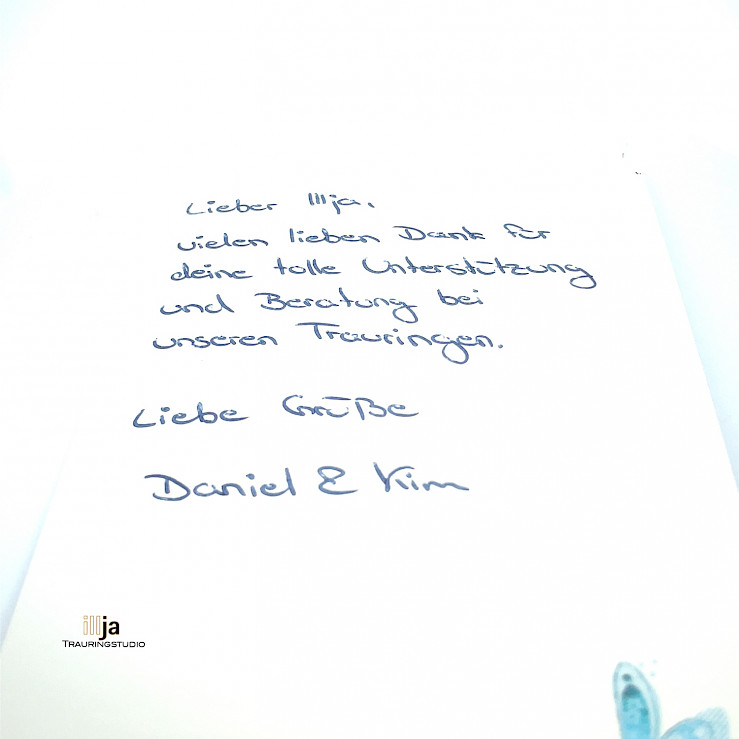 Lieber Illja,
vielen lieben Dank für
deine tolle Unterstützung
und Beratung bei
unseren Trauringen.
Liebe Grüße
Daniel & Kim
illja
TRAURINGSTUDIO